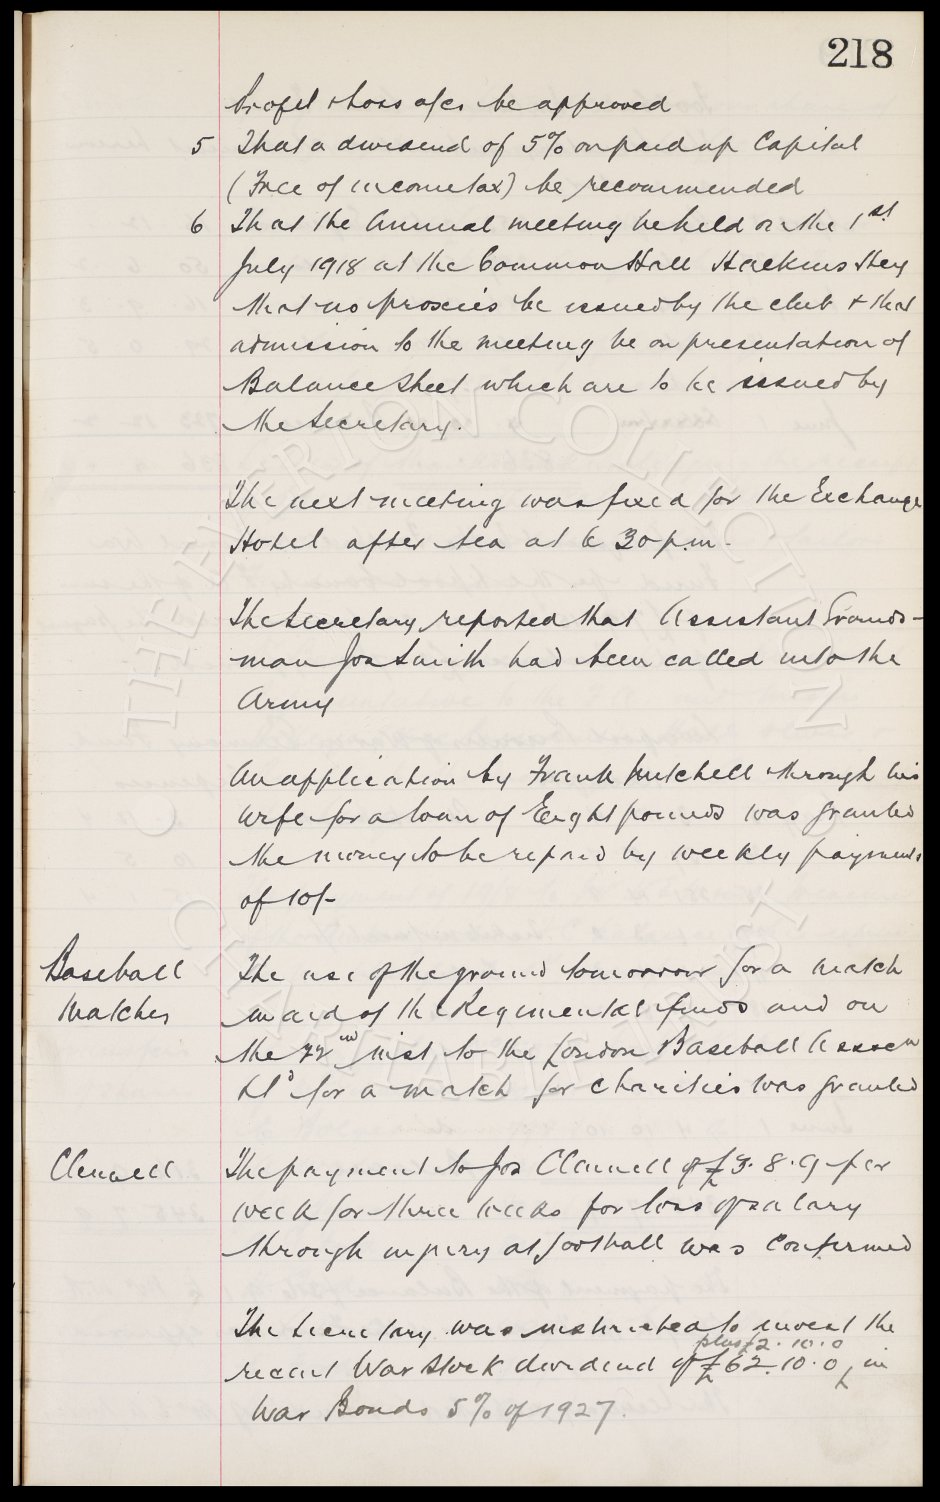 218
Profit & Loss a/cs be approved
5 That a dividend of 5% on paid up Capital
(Free of income tax) be recommended
6 That the Annual meeting be held on the 1st
July 1918 at the Common Hall Hackins Hey
that no proxies be issued by the club & that
admission to the meeting be on presentation of
Balance Sheet which are to be issued by
the Secretary.
The next meeting was fixed for the Exchange
Hotel after tea at 6 30 p.m.
The Secretary reported that Assistant Grounds-
man Jos Smith had been called into the
Army
An application by Frank Mitchell through his
wife for a loan of Eight pounds was granted
the money to be repaid by weekly payments
of 10/-
Baseball The use of the ground tomorrow for a match
Matches in aid of the Regimental funds and on
the 22nd inst to the London Baseball Assocn
Ltd for a match for charities was granted
Clennell The payment to Jos Clennell of £3.8.9 per
week for three weeks for loss of salary
through injury at football was confirmed
The Secretary was instructed to invest the
plus £2.10.0
recent War Stock dividend of £62.10.0 in
War Bonds 5% of 1927.
THE EVERTON COLLECTION
CHARITABLE TRUST